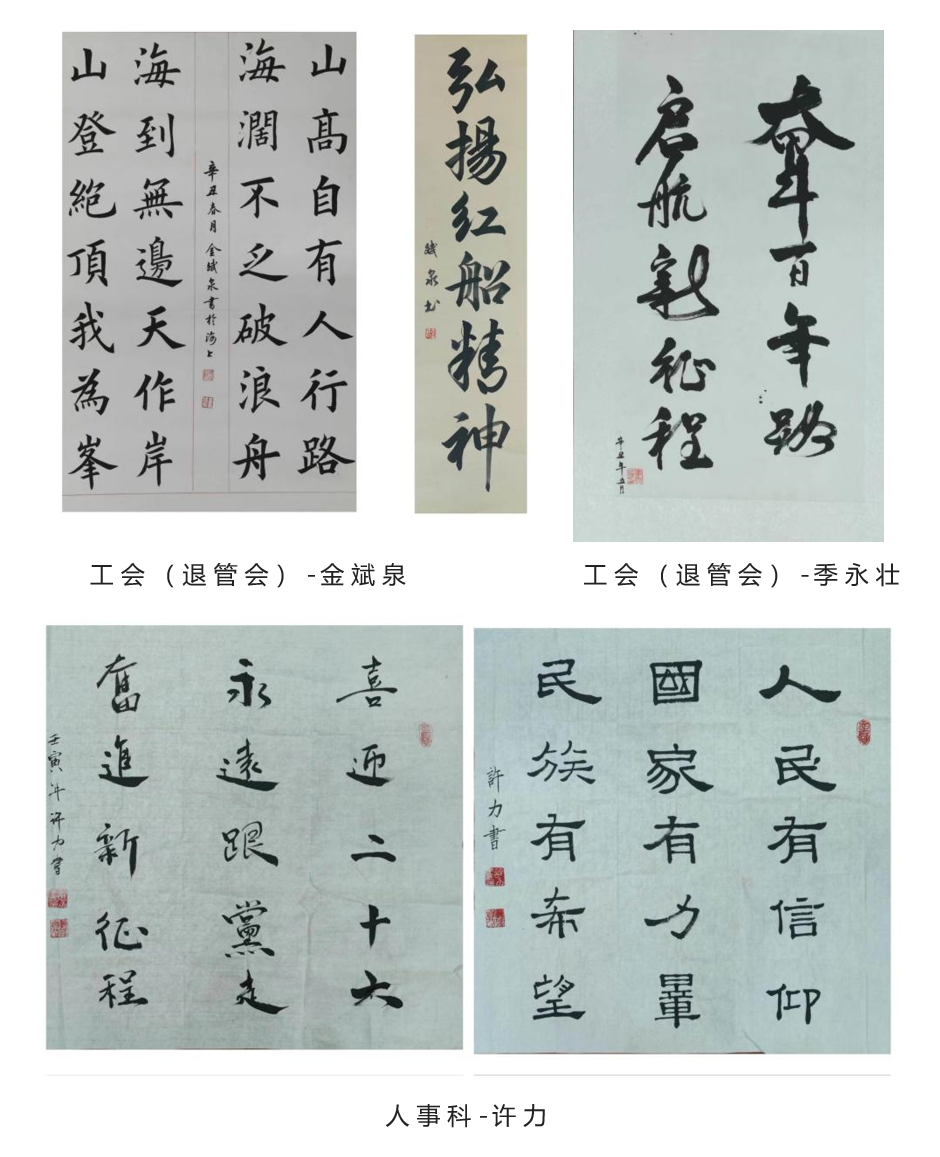 山髙自有人行路
海濶不乏破浪舟
辛丑春月 金斌泉書於海上
海到無邊天作岸
山登絶頂我為峯
弘揚红船精神
斌泉书
奋斗百年路
启航新征程
辛丑年五月
工会（退管会）-金斌泉
工会（退管会）-季永壮
喜迎二十大
永遠跟黨走
奮進新征程
壬寅年许力書
人民有信仰
國家有力量
民族有希望
許力書
人事科-许力